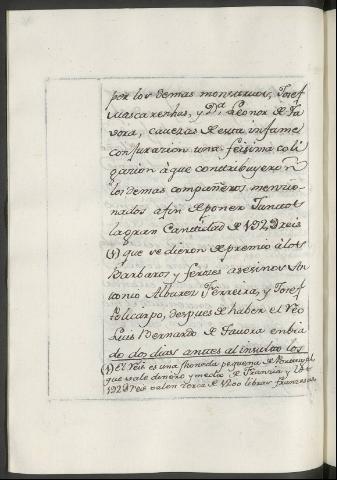 por los demas monstruos, Josef
Mascareñas, y D.ª Leonor de Ta
vora, cavezas de esta infame
conjurazion una feisima coli
gazion à que contribuyeron
los demas compañeros menzio
nados afin de poner juntos
la gran Cantidad de
(1) que se dieron de premio à los
Barbaros y ferozes asesinos An
tonio Albarez Ferreira, y Josef
Policarpo, despues de haber el Reo
Luis Bernardo de Tavora embia
do dos dias antes al insulto los
(1) El Reis es una moneda pequeña de Portugal
que vale dinero y medio de Franzia y los
192 reis valen zerca de libras franzesas.